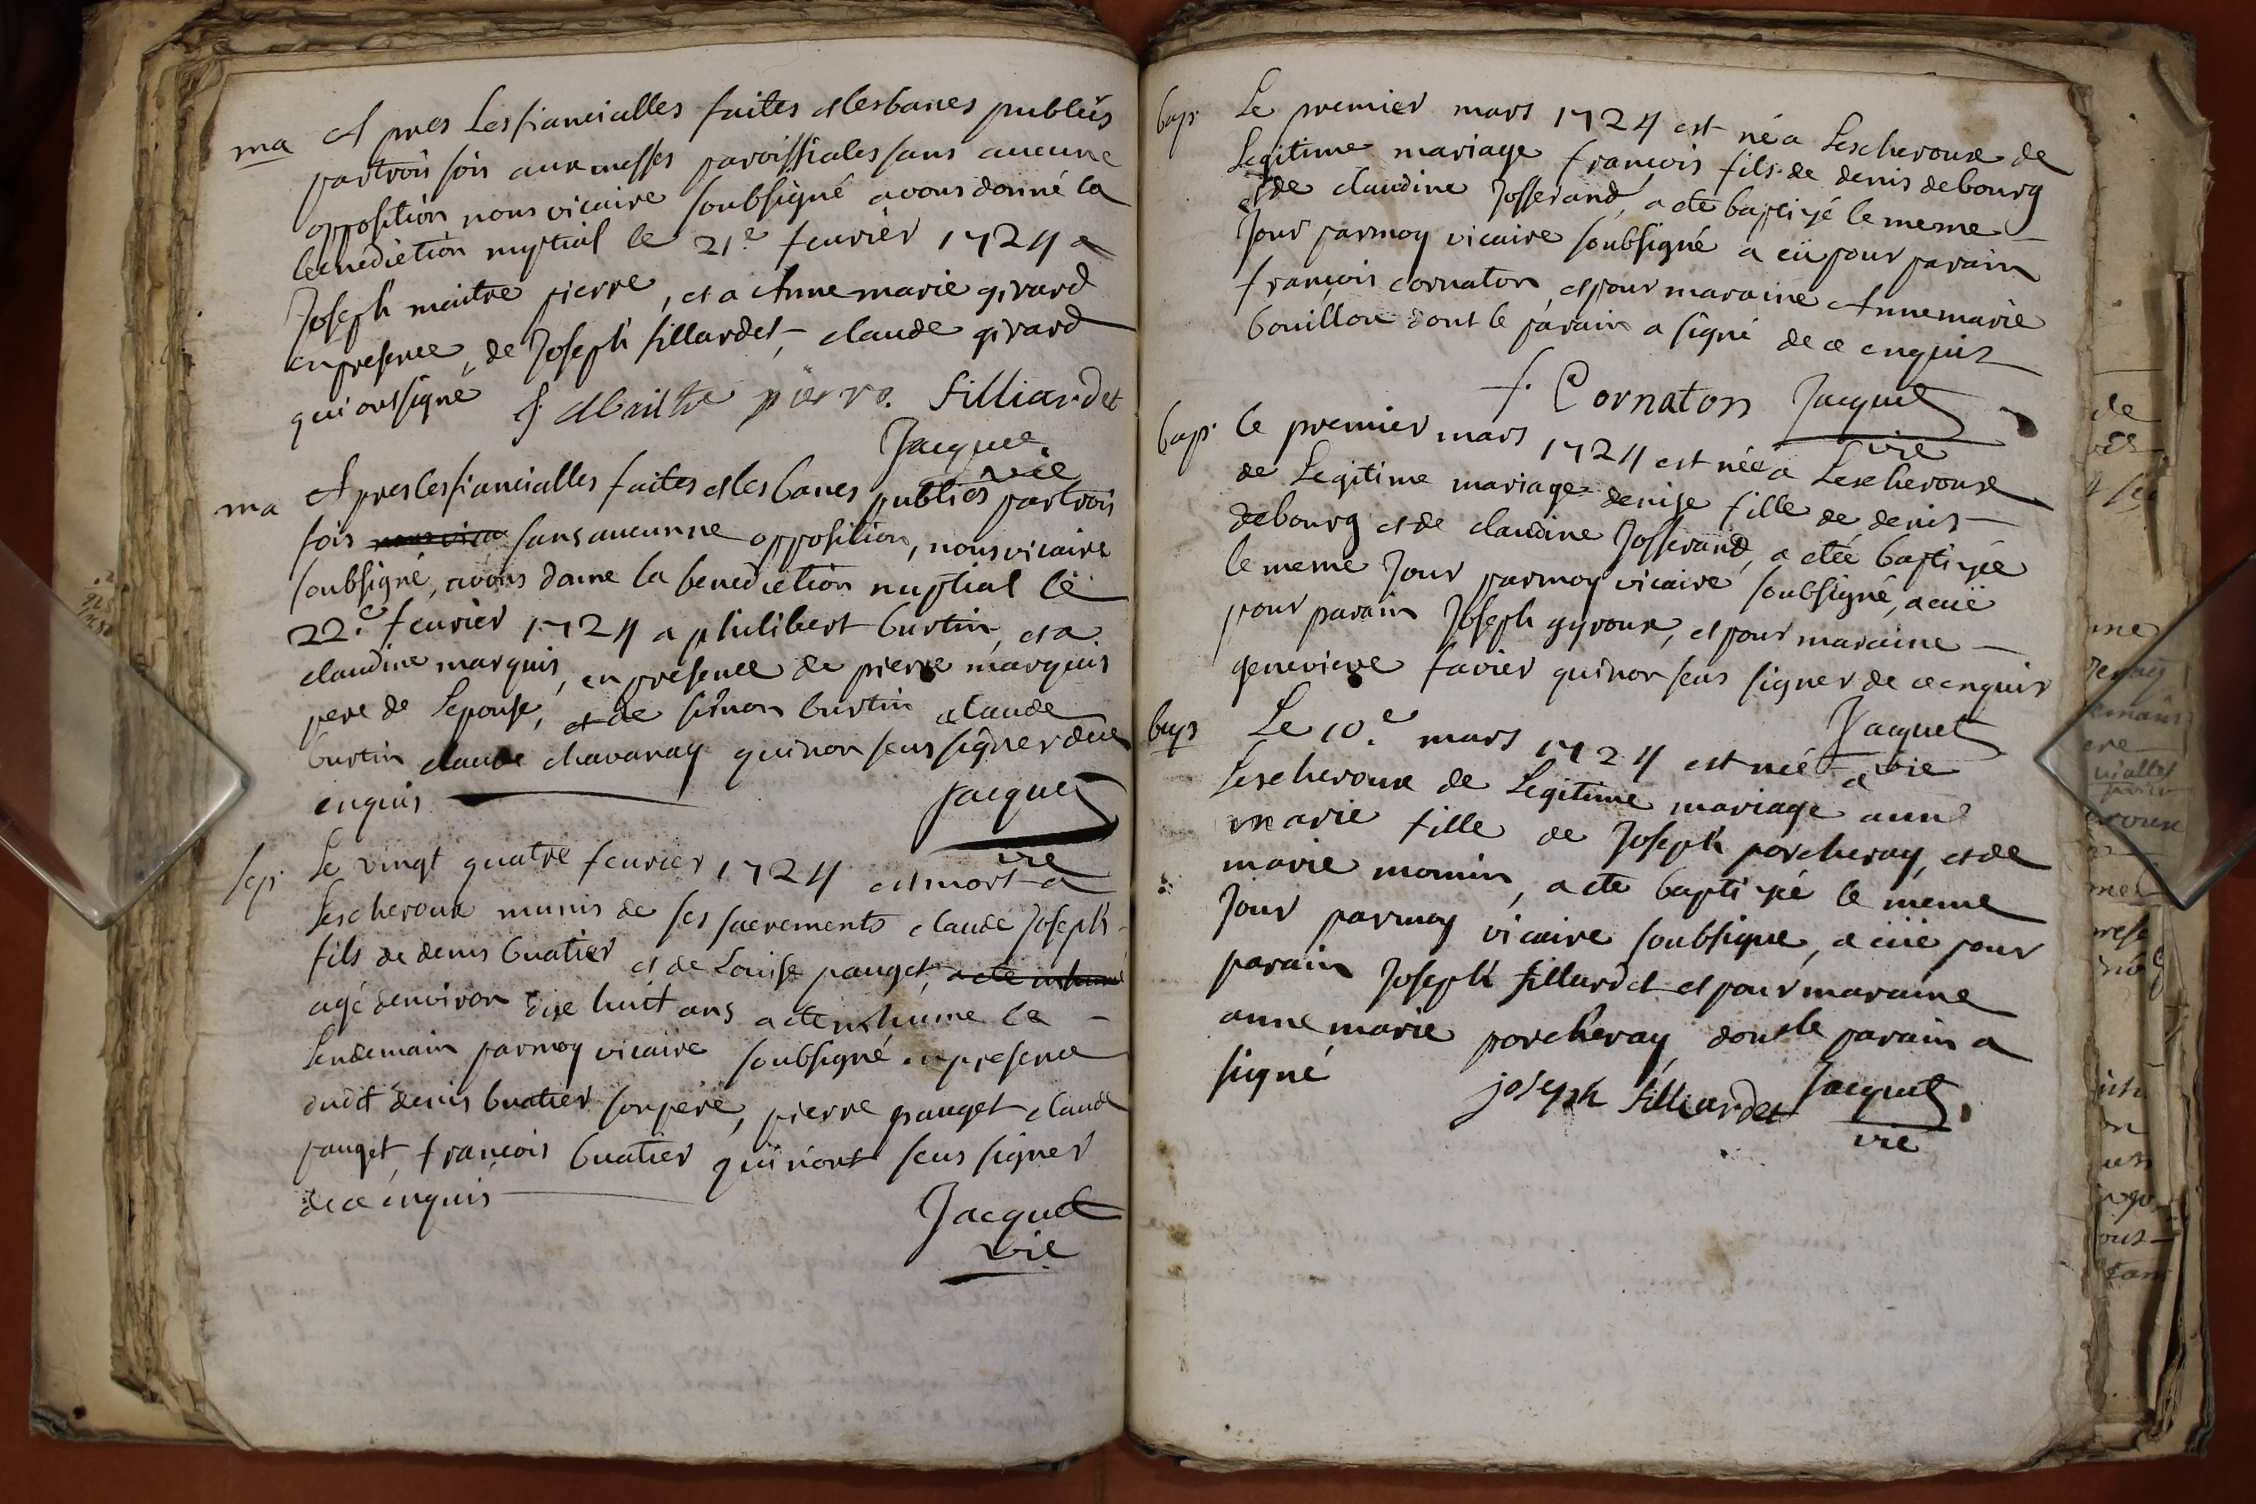 ma
Apres Les fiancialles faites et les bancs publiés
par trois fois aux messes paroissiales sans aucune
opposition nous vicaire soubsigné avons donné la
benediction nuptial le 21.e feurier 1724 a
Joseph maitre pierre, et a Anne marie girard
en presence, de Joseph fillardet, claude girard
qui ont signé
J. Maitre pierre. Filliardet
Jacquet
vic
ma
Apres les fiancialles faites et les bancs publiés par trois
fois nous vica sans aucunne opposition, nous vicaire
soubsigné, avons donne la benediction nuptial le
22.e feurier 1724 a philibert burtin, et a
claudine marquis, en presence de pierre marquis
pere de Lepouse, et de simon burtin claude
burtin claude chavanay qui non seus signer de ce
enquis
Jacquet
vic
sep.
Le vingt quatre feurier 1724 est mort a
Lescheroux munis de ses sacrements claude Joseph
fils de denis buatier et de Louise pauget, a ete inhumé
agé denviron dixe huit ans a ete inhume le
Lendemain par moy vicaire soubsigné en presence
dudt denis buatier son pere, pierre pauget claude
pauget, françois buatier qui n'ont seus signer
de ce enquis
Jacquet
vic
bap.
Le premier mars 1724 est né a Lescheroux de
Legitime mariage françois fils de denis debourg
et de claudine Josserand, a ete baptizé le meme
Jour par moy vicaire soubsigné a eü pour parain
françois cornaton, et pour maraine Anne marie
bouillon dont le parain a signé de ce enquis
f. Cornaton
Jacquet
vic
bap.
Le premier mars 1724 est née a Lescheroux
de Legitime mariage denise fille de denis
debourg et de claudine Josserand, a etée baptizée
le meme Jour par moy vicaire soubsigné, a eüe
pour parain Joseph gyroux, et pour maraine
genevieve favier qui non seus signer de ce enquis
Jacquet
vic
bap
Le 10.e mars 1724 est née a
Lescheroux de Legitime mariage anne
marie fille de Joseph porcheray, et de
marie monin, a ete baptizé le meme
Jour par moy vicaire soubsigne, a eüe pour
parain Joseph fillardet et pour maraine
anne marie porcheray, dont le parain a
signé
joseph filliardet
Jacquet
vic